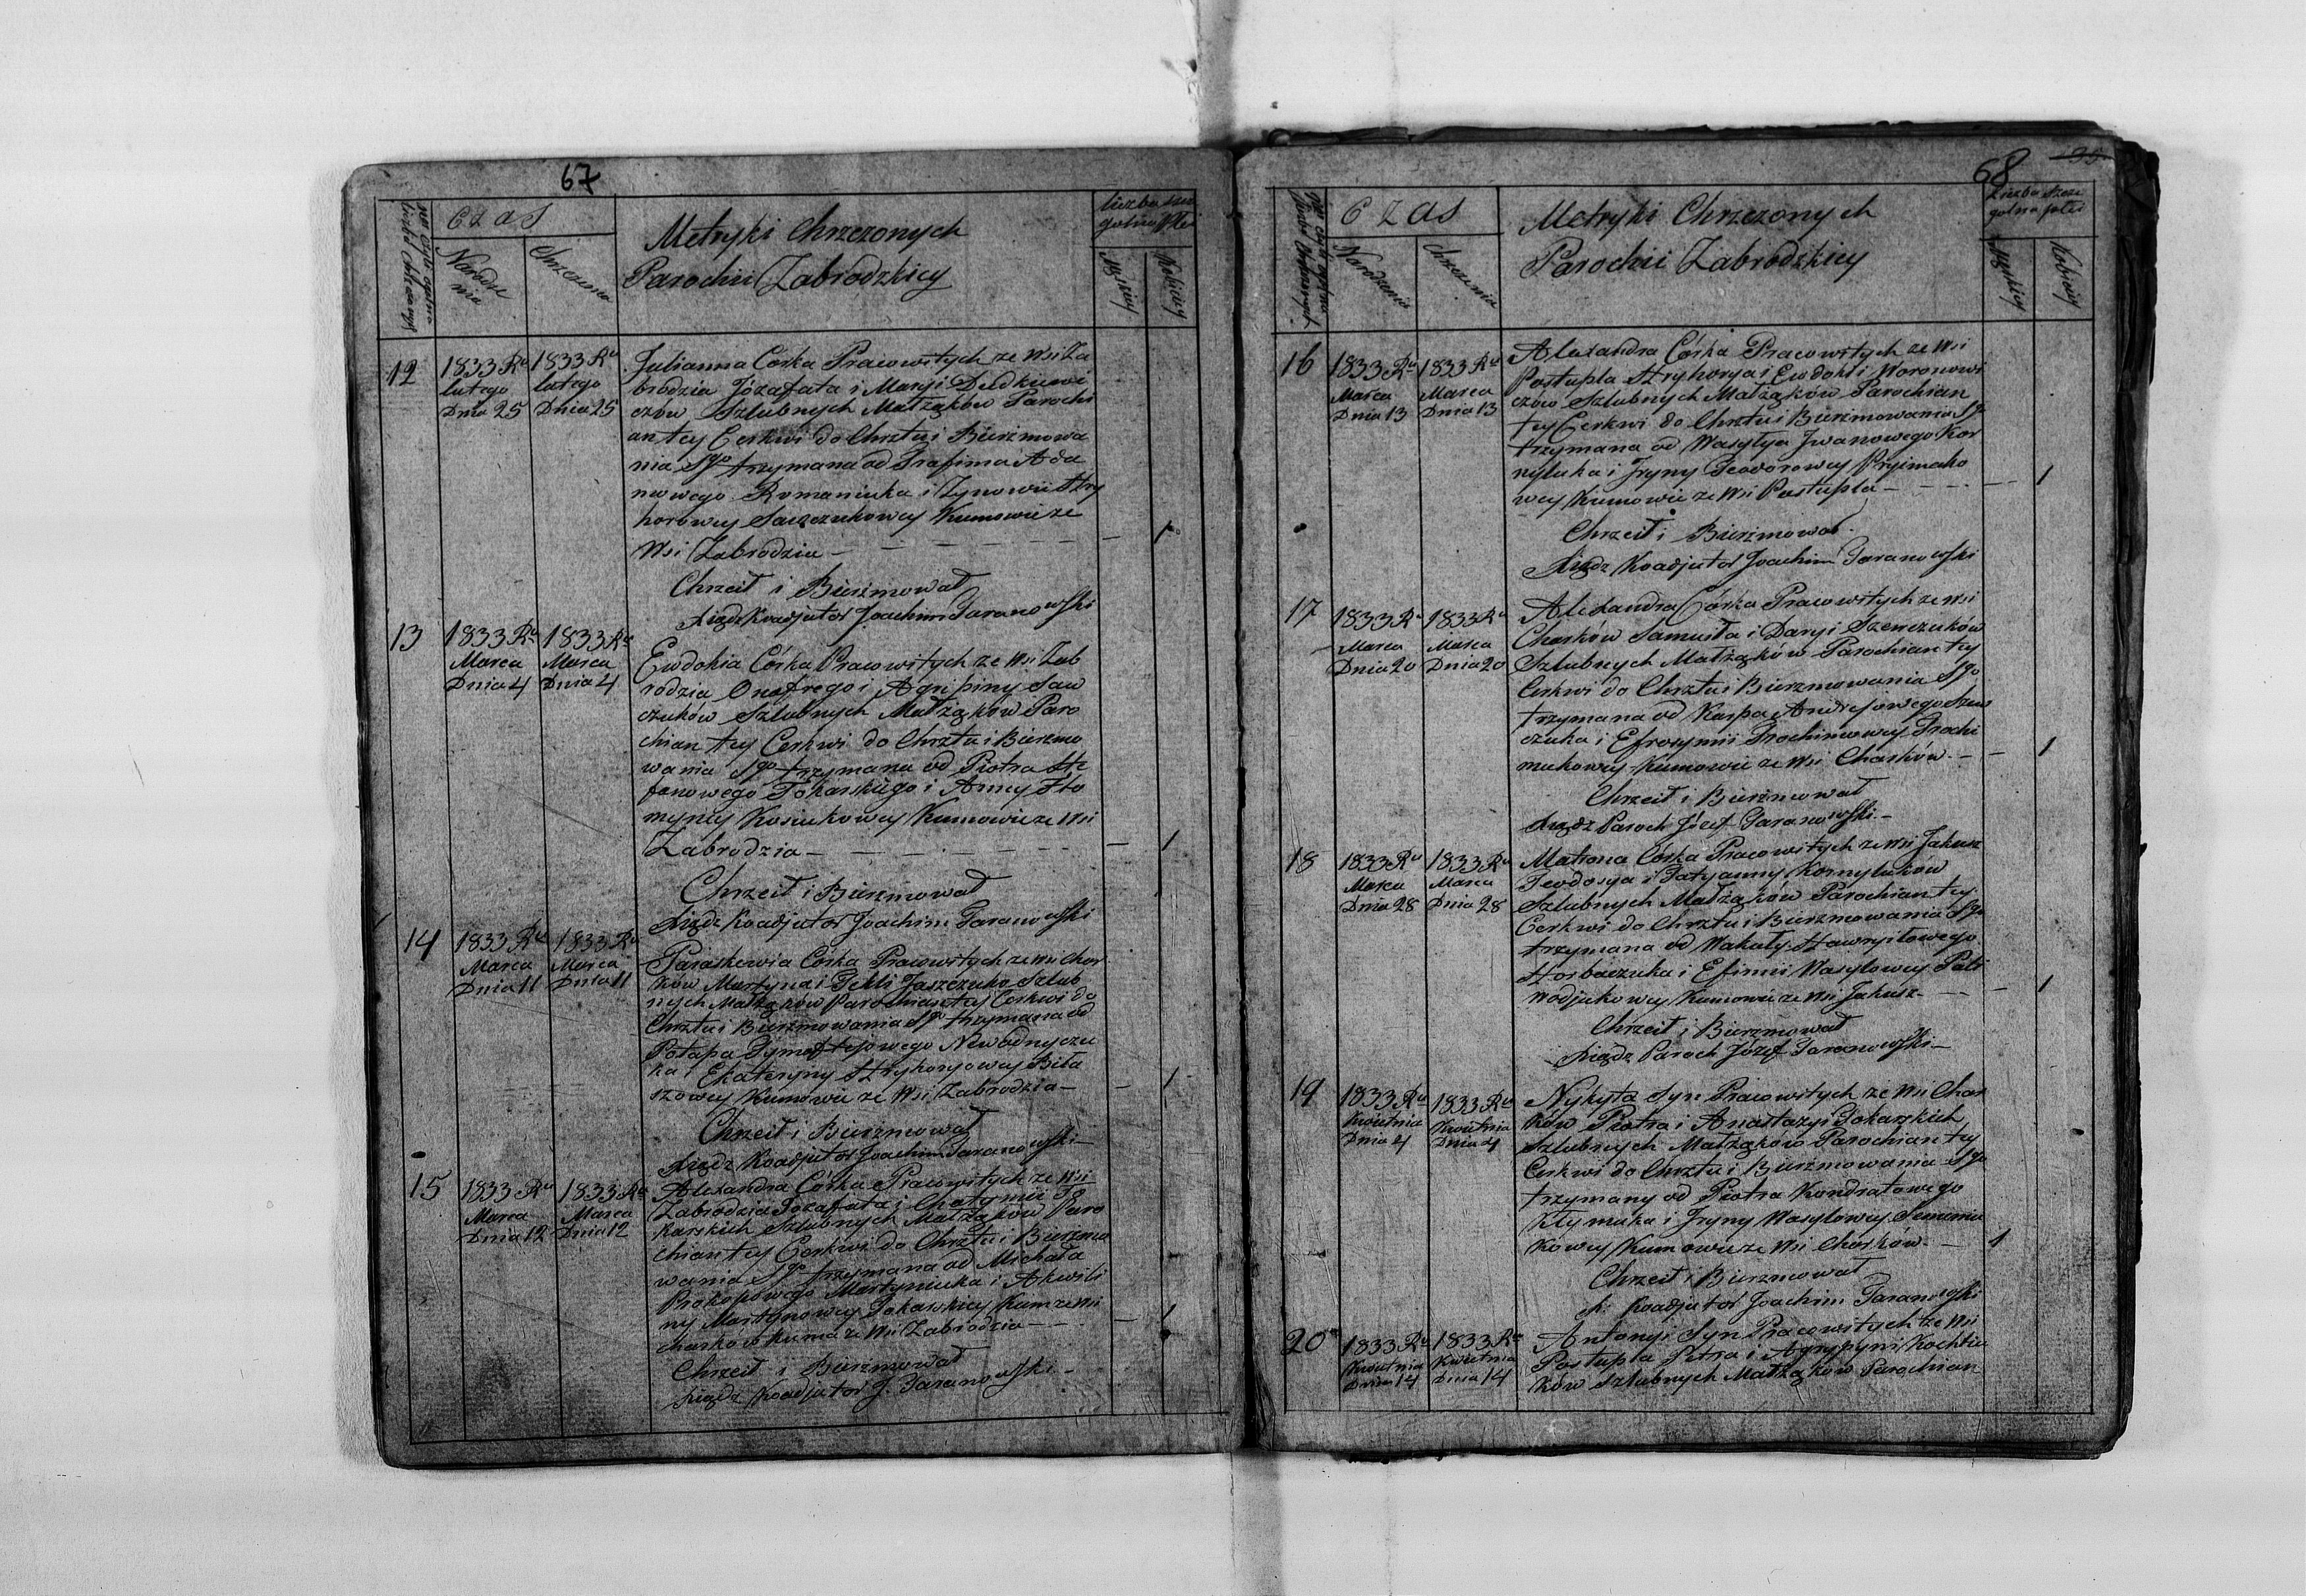 67
Czas
Narodze
nia
Chrzczenia
Metryki Chrzczonych
Parochii Zabrodzkiey
liczba szcze
golna płci
Męzkiey
Kobiecey
12
1833 Ru
lutego
Dnia 25
1833 Ru
lutego
Dnia 25
Julianna Corka Pracowitych ze Wsi Za
brodzia Józafata i Maryi Dudkiewi
czów Szlubnych Małżąków Parochi
an tey Cerkwi do Chrztu i Bierzmowa
nia Sgo trzymana od Trafima Ada
mowego Romaniuka i Zynowii Hry
horowey Sawczukowey Kumowie ze
Wsi Zabrodzia
1
Chrzcił i Bierzmował
Xiądz Koadjutor Joachim Taranowski
13
1833 Ru
Marca
Dnia 4
1833 Ru
Marca
Dnia 4
Ewdokia Córka Pracowitych ze Wsi Zab
rodzia Onofrego i Agripiny Saw
czuków Szlubnych Małżąków Paro
chian tey Cerkwi do Chrztu i Bierzmo
wania Sgo trzymana od Piotra Ste
fanowego Tokarskiego i Anny
Kosiukowey Kumowie ze Wsi
Zabrodzia
1
Chrzcił i Bierzmował
Xiądz Koadjutor Joachim Taranowski
14
1833 Ru
Marca
Dnia 11
1833 Ru
Marca
Dnia 11
Paraskewia Córka Pracowitych ze Wsi Char
ków Martyna i Tekli Jaszczuko Szlub
nych Małżąków Parochian tey Cerkwi do
Chrztu i Bierzmowania Sgo trzymana od
Potapa Tymoftejowego Newodnyczu
ka i Ekateryny Hryhoryowey Biła
szowey Kumowie ze Wsi Zabrodzia
1
Chrzcił i Bierzmował
Xiądz Koadjutor Joachim Taranowski
15
1833 Ru
Marca
Dnia 12
1833 Ru
Marca
Dnia 12
Alexandra Córka Pracowitych ze Wsi
Zabrodzia Jozafata i Chotymii To
karskich Szlubnych Małżąków Paro
chian tey Cerkwi do Chrztu i Bierzmo
wania Sgo trzymana od Michała
Prokopowego Martyniuka i Akwili
ny Martynowey Tokarskiey Kum ze Wsi
Charków kuma ze Wsi Zabrodzia
1
Chrzcił i Bierzmował
Xiądz Koadjutor J. Taranowski
68
Czas
Narodzenia
Chrzczenia
Metryki Chrzczonych
Parochii Zabrodzkiey
Liczba Szcze
golna płci
Męzkiey
Kobiecey
16
1833 Ru
Marca
Dnia 13
1833 Ru
Marca
Dnia 13
Alexandra Córka Pracowitych ze Wsi
Postupla Hryhorya i Ewdokii Woronowi
czów Szlubnych Małżąków Parochian
tey Cerkwi do Chrztu i Bierzmowania Sgo
trzymana od Wasylya Jwanowego Kor
nyluka i Jryny Teodorowey Pryimako
wey Kumowie ze Wsi Postupla
1
Chrzcił i Bierzmował
Xiądz Koadjutor Joachim Taranowski
17
1833 Ru
Marca
Dnia 20
1833 Ru
Marca
Dnia 20
Alexandra Córka Pracowitych ze Wsi
Charków Samuiła i Daryi Szewczuków
Szlubnych Małżąków Parochian tey
Cerkwi do Chrztu i Bierzmowania Sgo
trzymana od Karpa Andrejowego Szew
czuka i Efrosynii Trochimowey Trochi
mukowey Kumowie ze Wsi Charków
1
Chrzcił i Bierzmował
Xiądz Paroch Józef Taranowski
18
1833 Ru
Marca
Dnia 28
1833 Ru
Marca
Dnia 28
Matrona Córka Pracowitych ze Wsi Jakusz
Teodosya i Tatyanny Kornyluków
Szlubnych Małżąków Parochian tey
Cerkwi do Chrztu i Bierzmowania Sgo
trzymana od Wakuły Hawryiłowego
Horbaczuka i Efimii Wasylowey Pali
wodjukowey Kumowie ze Wsi Jakusz
1
Chrzcił i Bierzmował
Xiądz Paroch Józef Taranowski
19
1833 Ru
Kwietnia
Dnia 4
1833 Ru
Kwietnia
Dnia 4
Nykyta Syn Pracowitych ze Wsi Char
ków Piotra i Anastazyi Tokarskich
Szlubnych Małżąków Parochian tey
Cerkwi do Chrztu i Bierzmowania Sgo
trzymany od Piotra Kondratowego
Kłymuka i Jryny Wasylowey Semeniu
kowey Kumowie ze Wsi Charków
1
Chrzcił i Bierzmował
X. Koadjutor Joachim Taranowski
20
1833 Ru
Kwietnia
Dnia 14
1833 Ru
Kwietnia
Dnia 14
Antonyi Syn Pracowitych ze Wsi
Postupla Petra i Agrypyni Kochtiu
ków Szlubnych Małżąków Parochian